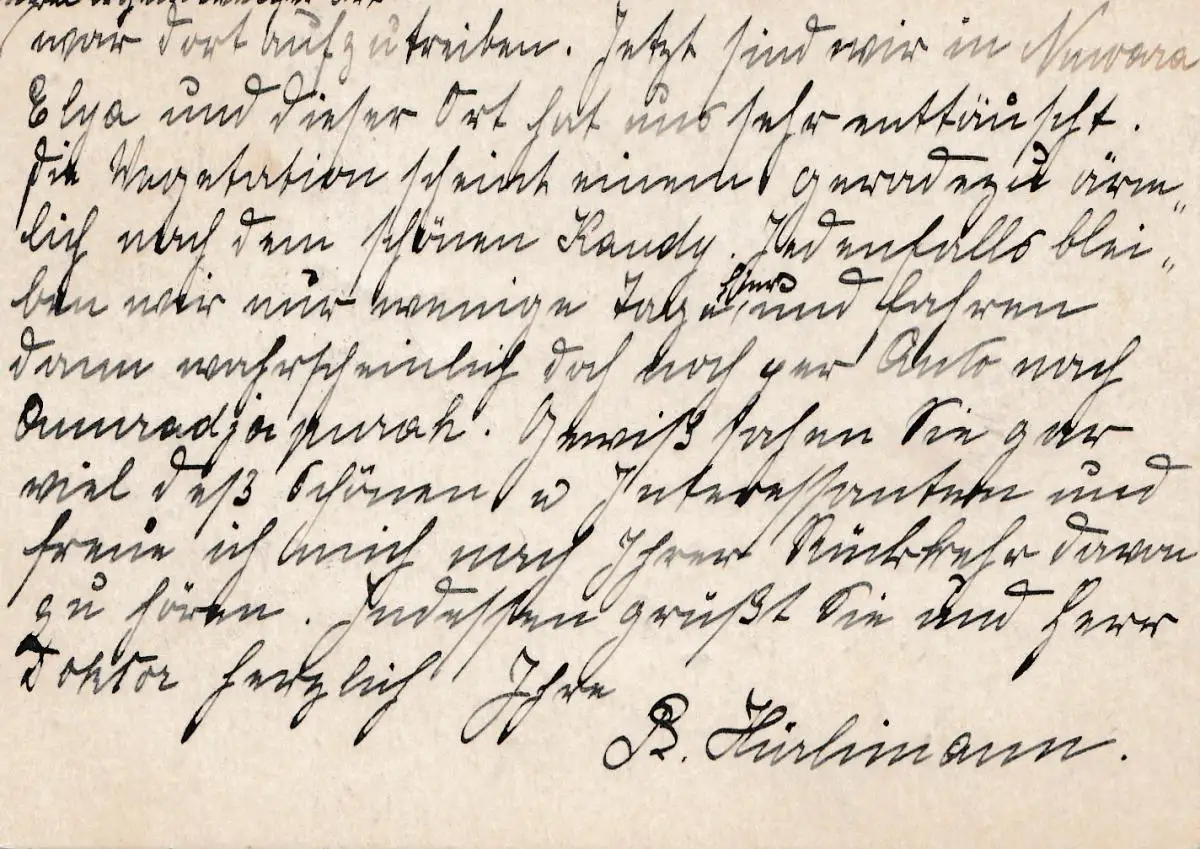 war dort aufzutreiben. Jetzt sind wir in Nuwara
Elya und dieser Ort hat uns sehr enttäuscht.
Die Vegetation scheint einem geradezu ärm„
lich nach dem schönen Kandy. Jedenfalls blei„
ben wir nur wenige Tage hier und fahren
dann wahrscheinlich doch noch per Auto nach
Anuradjapurah. Gewiß sahen Sie gar
viel deß Schönen u Interessanten und
freue ich mich nach Ihrer Rückkehr davon
zu hören. Indessen grüßt Sie und Herr
Doktor herzlich Ihre
B. Hürlimann.